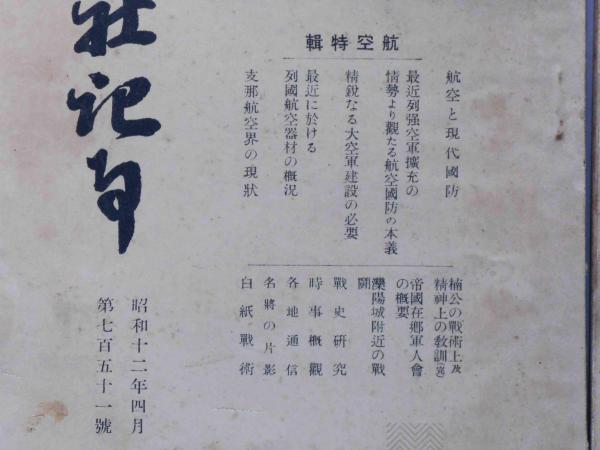 輯特空航
航空と現代國防
最近列强空軍擴充の
情勢より觀たる航空國防の本義
精銳なる大空軍建設の必要
最近に於ける
列國航空器材の概況
支那航空界の現狀
楠公の戰術上及
精神上の敎訓(完)
帝國在鄕軍人會
の概要
灤陽城附近の戰
鬪
戰史硏究
時事概觀
各地通信
名將の片影
白紙戰術
社記事
昭和十二年四月
第七百五十一號